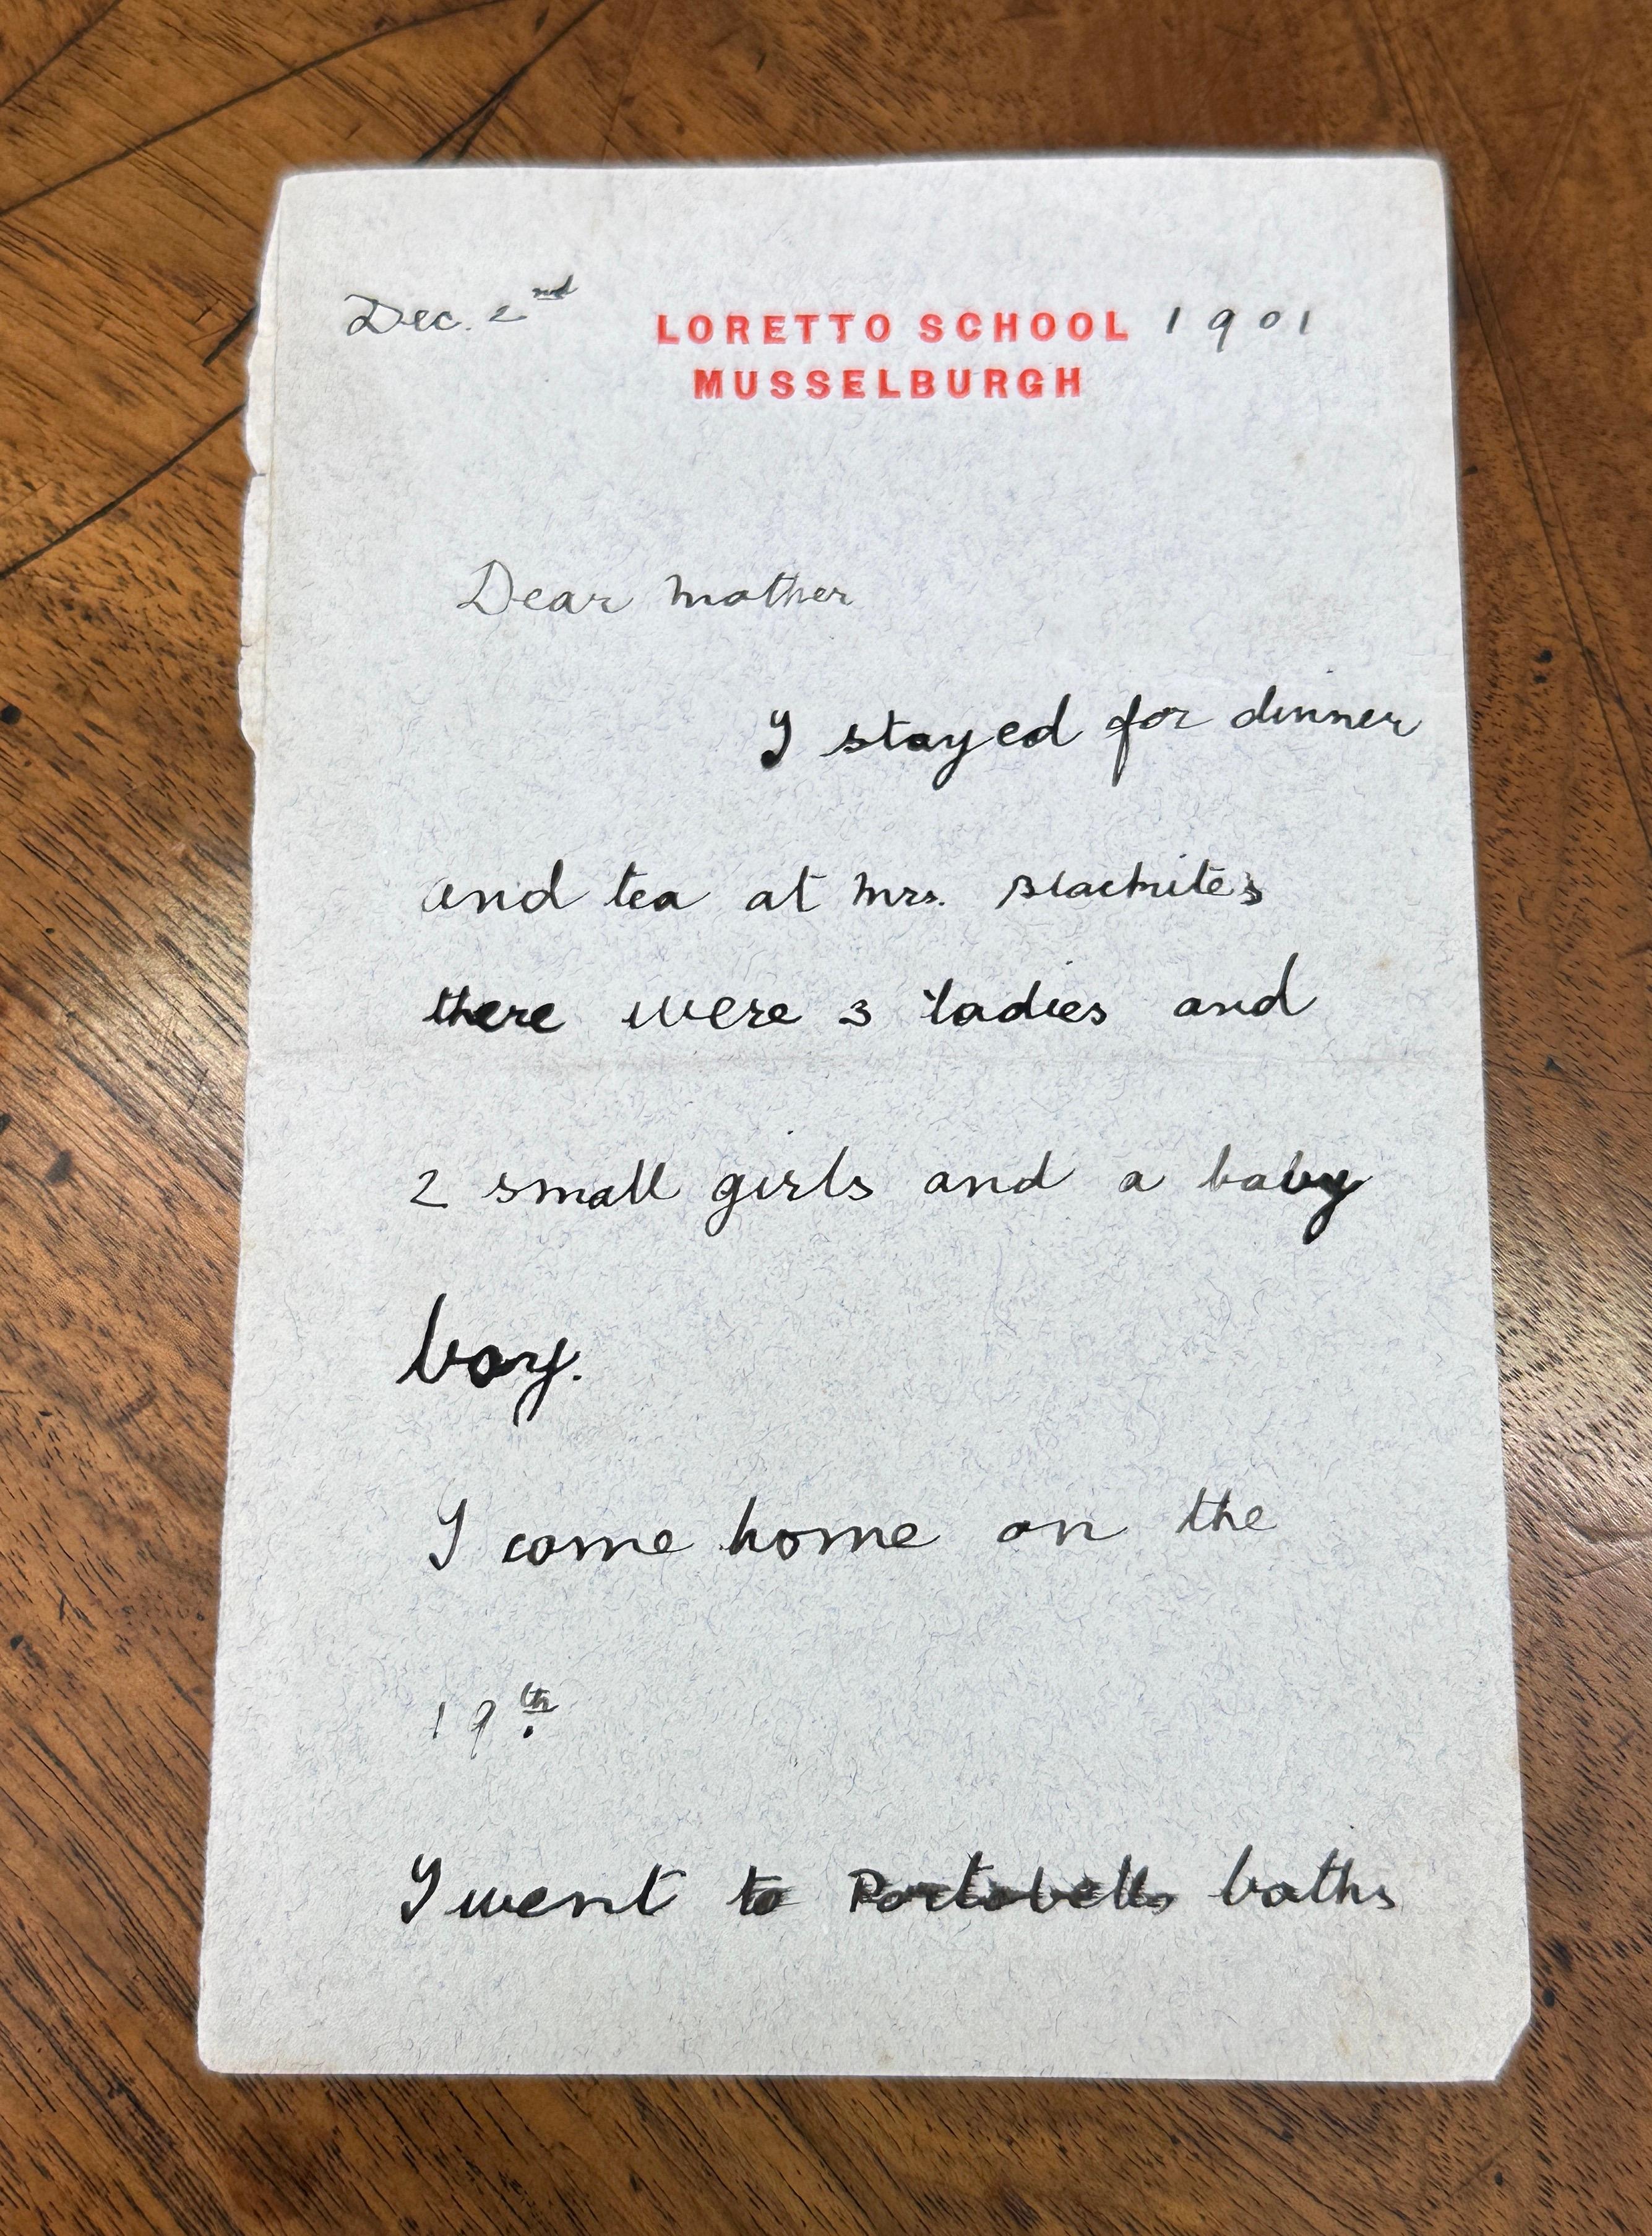 Dec. 2nd LORETTO SCHOOL 1901
MUSSELBURGH
Dear mother
I stayed for dinner
and tea at Mrs.
there were 3 ladies and
2 small girls and a baby
boy.
I come home on the
19th.
I went to Portobello baths